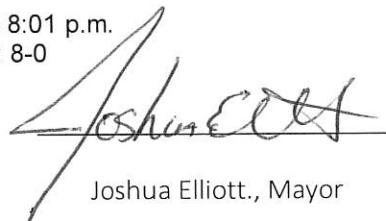 8:01 p.m.
8-0
Joshua Elliott
Joshua Elliott., Mayor